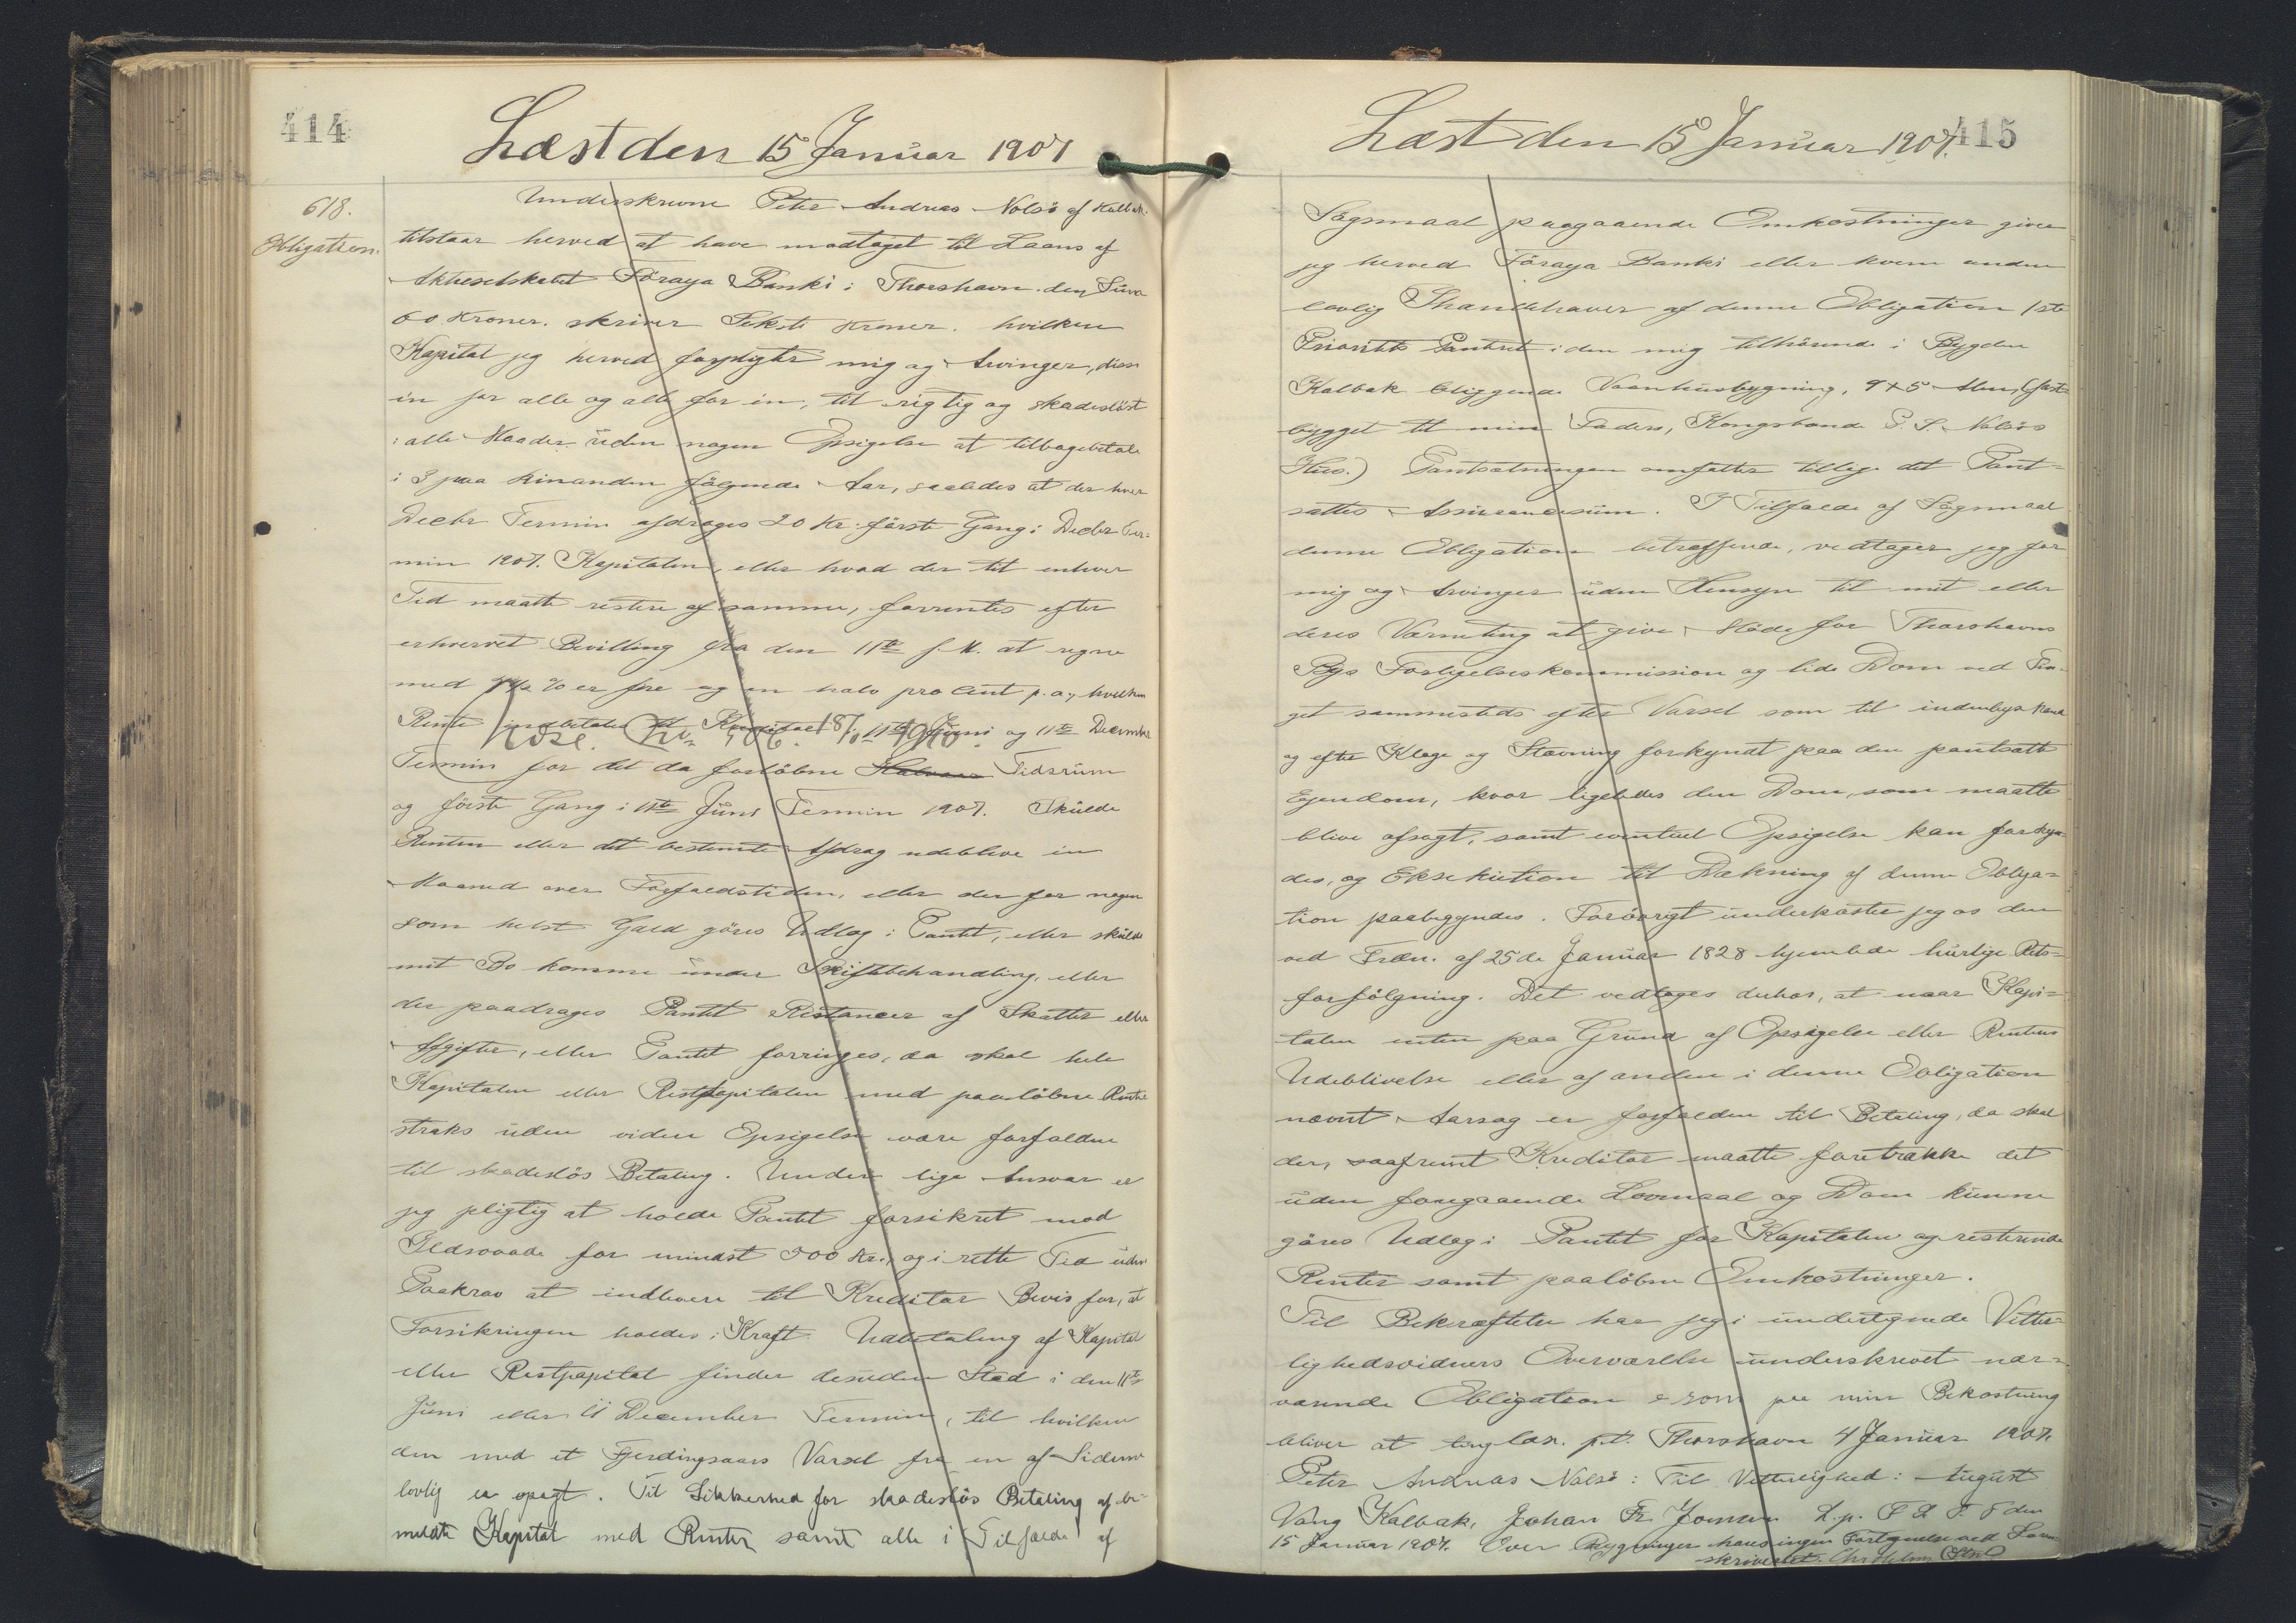 414
Læst den 15 Januar 1907
618.
Obligation.
Underskrevne Peter Andreas Nolsö af Kalbak
tilstaar herved at have modtaget til Laans af
Aktieselskabet Föroya Banki i Thorshavn den Sum
60 Kroner. skriver Seksti Kroner. hvilken
Kapital jeg herved forpligter mig og Arvinger, disse
in for alle og alle for in, til rigtig og skadeslöst
i alle Maader uden nogen Opsigelse at tilbagebetale
i 3 paa hinanden fölgende Aar, saaledes at der hver
Decbr Termin afdrages 20 Kr. förste Gang i Decbr Ter=
min 1907. Kapitalen, eller hvad der til enhver
Tid maatte restere af samme, forrentes efter
erhvervet Bevilling fra den 11te f. M. at regne
med 4½ % er fire og en halv procent p.a., hvilken
Rente indbetales til Kreditor 11te Juni og 11te December
Termin for det da forløbne Halvaar Tidsrum
og förste Gang i 11te Juni Termin 1907. Skulde
Renten eller det bestemte Afdrag udeblive in
Maaned over Forfaldstiden, eller der for nogen
som helst Gæld göres Udlæg i Pantet, eller skulde
mit Bo komme under Skiftebehandling, eller
der paadrages Pantet Restancer af Skatter eller
Afgifter, eller Pantet forringes, da skal hele
Kapitalen eller Restkapitalen med paalöbne Renter
straks uden viden Opsigelse være forfalden
til skadeslös Betaling. Under lige Ansvar er
jeg pligtig at holde Pantet forsikret mod
Ildsvaade for mindst 500 Kr., og i rette Tid uden
Paakrav at indlevere til Kreditor Bevis for, at
Forsikringen holdes i Kraft. Udbetaling af Kapital
eller Restkapital finder desuden Sted i den 11te
Juni eller 11 December Termin, til hvilken
den med et Fjerdingaars Varsel fra en af Siderne
lovlig er opsagt. Til Sikkerhed for skadeslös Betaling af be=
meldte Kapital med Renter samt alle i Tilfælde af
415
Læst den 15 Januar 1907.
Sögsmaal paagaaende Omkostninger giver
jeg herved Föroya Banki eller hvem anden
lovlig Ihændehaver af denne Obligation 1ste
Prioritets Panteret i den mig tilhörende i Bygden
Kalbak liggende Vaanhusbygning, 9 x 5 Alen, (fast
bygget til min Faders, Kongsbonde P. S. Nolsös
Hus.) Pantsætningen omfatter tillige det Pant=
sattes Assurancesum. I Tilfælde af Sögsmaal
denne Obligation betræffende, vedtager jeg for
mig og Arvinger uden Hensyn til mit eller
deres Værneting at give Möde for Thorshavns
Bys Forligelseskommission og lide Dom ved Tin=
get sammesteds efter Varsel som til indenbys Mand
og efter Klage og Stævning forkyndt paa den pantsatte
Ejendom, hvor ligeledes den Dom, som maatte
blive afsagt, samt eventuel Opsigelse kan forkyn=
des, og Eksekution til Dækning af denne Obliga=
tion paabegyndes. Forövrigt underkaster jeg os den
ved Frdn. af 25de Januar 1828 hjemlede hurtige Rets=
forfölgning. Det vedtages derhos, at naar Kapi=
talen enten paa Grund af Opsigelse eller Rentens
Udeblivelse eller af anden i denne Obligation
nævnt Aarsag er forfalden til Betaling, da skal
der, saafremt Kreditor maatte foretrække det
uden foregaaende Lovmaal og Dom kunne
göres Udlæg i Pantet for Kapitalen og resterende
Renter samt paalöbne Omkostninger.
Til Bekræftelse har jeg i undertegnede Vitter=
lighedsvidners Overværelse underskrevet nær=
værende Obligation som paa min Bekostning
bliver at tinglæse. p.t. Thorshavn 4 Januar 1907.
Peter Andreas Nolsö: Til Vitterlighed: August
Vang Kalbak, Johan Fr Joensen L.p. F Ø T. T den
15 Januar 1907. Over Bygninger haves ingen Fortegnelse ved Soren
skriveriet.